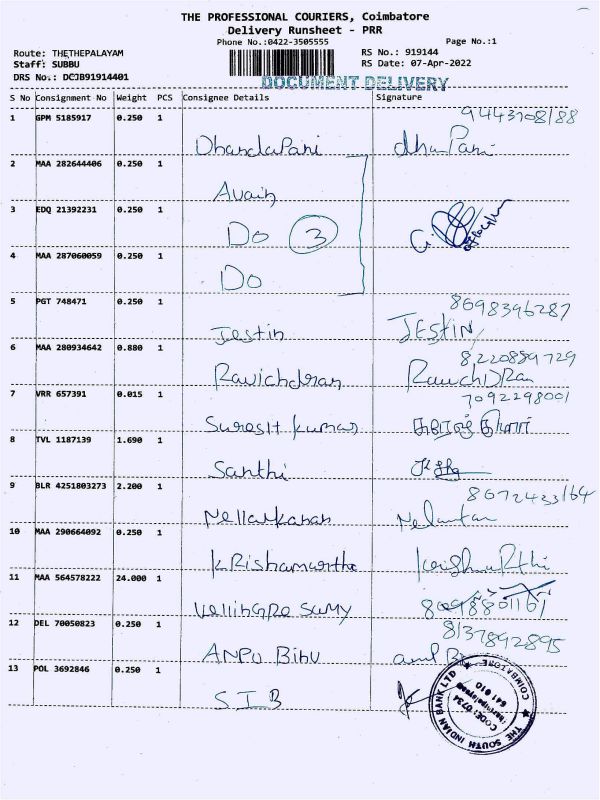 THE PROFESSIONAL COURIERS, Coimbatore
Delivery Runsheet - PRR
Phone No.:0422-3505555
Page No.:1
Route: THETHEPALAYAM
RS No.: 919144
Staff: SUBBU
RS Date: 07-Apr-2022
DRS No.: DCJB91914401
DOCUMENT DELIVERY
S No Consignment No Weight PCS Consignee Details Signature
1 GPM 5185917 0.250 1
DhandaPani
2 MAA 282644406 0.250 1
3 EDQ 21392231 0.250 1
Do 3
4 MAA 287060059 0.250 1
Do
5 PGT 748471 0.250 1 8698396287
Jestin JEStIN
6 MAA 280934642 0.880 1 8220889729
Ravichdran
7 VRR 657391 0.015 1 7092298001
SuresH kumar
8 TVL 1187139 1.690 1
Santhi
9 BLR 4251803273 2.200 1
10 MAA 290664092 0.250 1
11 MAA 564578222 24.000 1
12 DEL 70050823 0.250 1 8137892895
ANPU Bibu
13 POL 3692846 0.250 1
S I B
THE SOUTH INDIAN BANK LTD
COIMBATORE
CODE: 0734
641 010